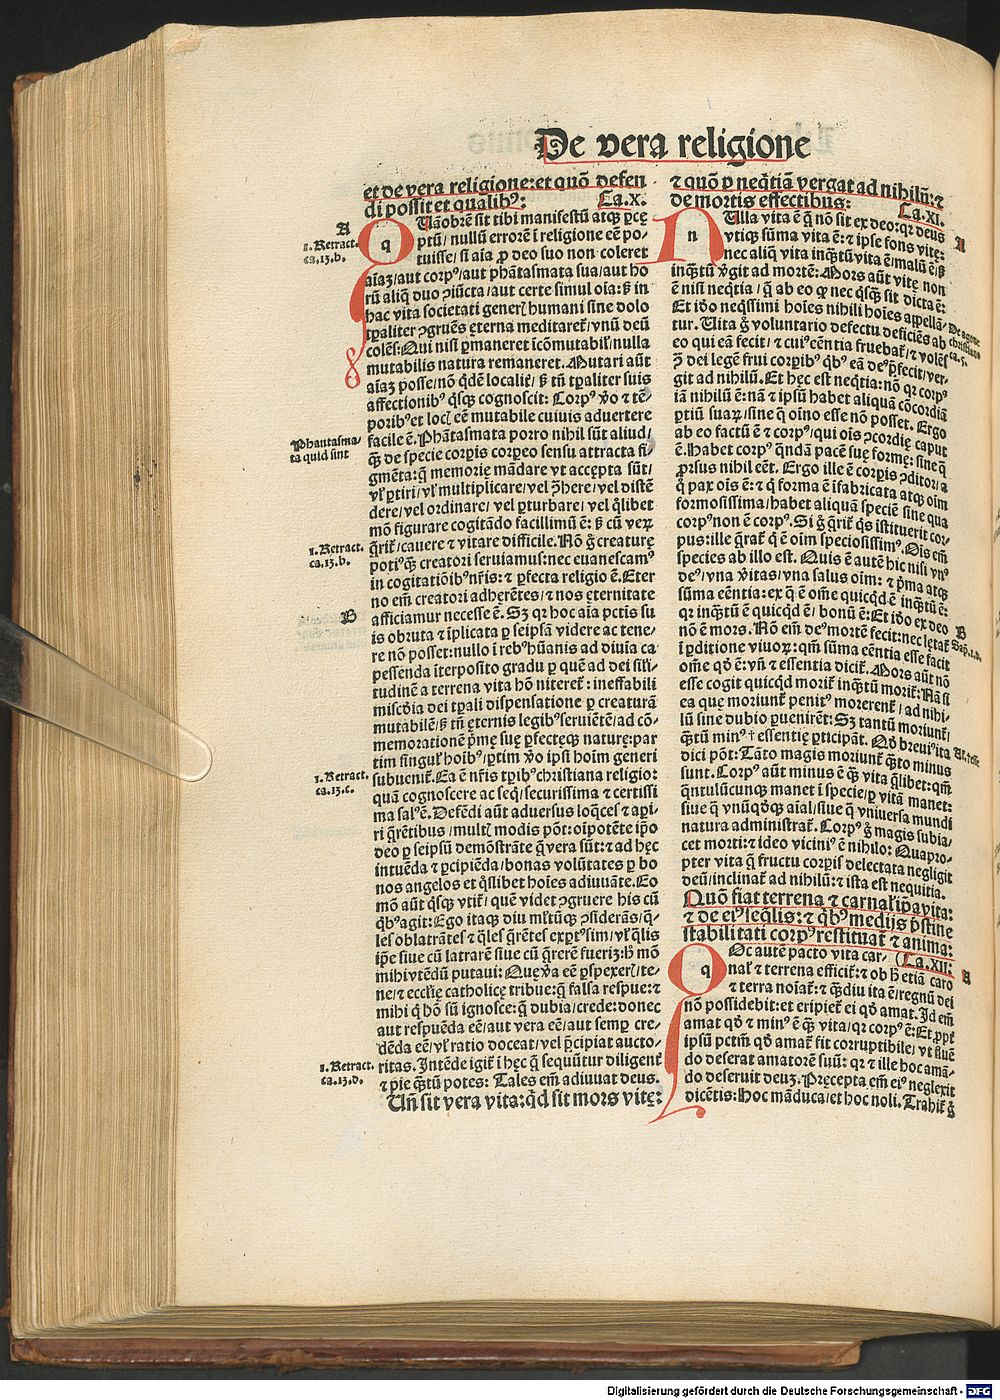 De vera religione
et de vera religione: et quō defen
di possit et qualibꝰ: Ca.X.
A
1. Retract.
ca.13.b.
q Uāobrē sit tibi manifestū atqꝫ ꝑce
ptū/ nullū errorē ī religione eē po-
tuisse/ si aīa ꝓ deo suo non coleret
aīaꝫ/ aut corpꝰ/ aut phātasmata sua/ aut ho
rū aliq̄ duo ꝯiūcta/ aut certe simul oīa: ß in
hac vita societati generꝭ humani sine dolo
tꝑaliter ꝯgruēs ęterna meditaret̄/ vnū deū
colēs: Qui nisi ꝑmaneret īcōmutabilꝭ/ nulla
mutabilis natura remaneret. Mutari aūt
aīaꝫ posse/ nō q̄dē localiꝉ/ ß tn̄ tꝑaliter suis
affectionibꝰ q̄sqꝫ cognoscit: Corpꝰ v̄o ⁊ tē-
poribꝰ et locꝭ eē mutabile cuiuis aduertere
Phantasma-
ta quid sint
facile ē. Phātasmata porro nihil sūt aliud/
q̄ꝫ de specie corꝑis corꝑeo sensu attracta fi-
gmēta: q̄ memorię mādare vt accępta sūt/
vꝉ ꝑtiri/ vꝉ multiplicare/ vel ꝯ̄here/ vel distē
dere/ vel ordinare/ vel ꝑturbare/ vel q̄libet
mō figurare cogitādo facillimū ē: ß cū verꝝ
1. Retract.
ca.13.b.
q̄rit̄/ cauere ⁊ vitare difficile. Nō g̊ creaturę
potiꝰq̄ꝫ creatori seruiamus: nec euanescamꝰ
in cogitatiōibꝰ nr̄is: ⁊ ꝑfecta religio ē. Eter
no em̄ creatori adherētes/ ⁊ nos ęternitate
B
afficiamur necesse ē. Sꝫ qꝛ hoc aīa pctīs su
is obruta ⁊ īplicata ꝑ seipsā videre ac tene/
re nō posset: nullo ī rebꝰ hūanis ad diuīa ca
pessenda īterposito gradu ꝑ quē ad dei sili/
tudinē a terrena vita hō niteret̄: ineffabili
mīscd̄ia dei tꝑali dispensatione ꝑ creaturā
mutabilē/ ß tn̄ ęternis legibꝰ seruiētē/ ad cō-
memorationē p̄mę suę ꝑfectęqꝫ naturę: par
tim singulꝭ hoībꝰ/ ꝑtim v̄o ipsi hoīm generi
1. Retract.
ca.13.c.
subuenit̄. Ea ē nr̄is tꝑibꝰ christiana religio:
quā cognoscere ac seq̄/ securissima ⁊ certissi
ma salꝰ ē. Defēdi aūt aduersus loq̄ces ⁊ aꝑi/
ri q̄rētibus/ multꝭ modis pōt: oīpotēte ip̄o
deo ꝑ seipsū demōstrāte q̄ vera sūt: ⁊ ad hęc
intuēda ⁊ ꝑcipiēda/ bonas volūtates ꝑ bo
nos angelos et q̄slibet hoīes adiuuāte. Eo
mō aūt q̄sqꝫ vtit̄/ quē videt ꝯgruere his cū
q̄bꝰ agit: Ego itaqꝫ diu ml̄tūqꝫ ꝯsiderās/ q̄-
les oblatrātes ⁊ q̄les q̄rētes exꝑtꝰ sim/ vꝉ q̄lis
ip̄e siue cū latrarē siue cū q̄rerē fuerī: h̄ mō
mihi vtēdū putaui: Que v̄a eē ꝑspexerꝭ/ te/
ne/ et ecclīę catholicę tribue: q̄ falsa respue: ⁊
mihi q̇ hō sū ignosce: q̄ dubia/ crede: donec
aut respuēda eē/ aut vera eē/ aut semꝑ cre/
dēda eē/ vꝉ ratio doceat/ vel p̄cipiat aucto/
1. Retract.
ca.13.d.
ritas. Intēde igit̄ ī hęc q̄ sequūtur diligent̄
⁊ pie q̄tū potes: Tales em̄ adiuuat deus.
Un̄ sit vera vita: q̇d sit mors vitę:
⁊ quō ꝑ neq̄tiā vergat ad nihilū: ⁊
de mortis effectibus: Ca.XI.
A
n Ulla vita ē q̄ nō sit ex deo: qꝛ deus
vtiqꝫ sūma vita ē: ⁊ ipse fons vitę:
nec aliq̄ vita inq̄tū vita ē/ malū ē/ ß
inq̄tū v̄git ad mortē: Mors aūt vitę non
ē nisi neq̄tia/ q̄ ab eo ꝙ nec q̇sq̄ sit dicta ē:
Et iō neq̄ssimi hoīes nihili hoīes appellā-
De agone
christiano
ca.5.
tur. Uita g̊ voluntario defectu deficiēs ab
eo qui eā fecit/ ⁊ cuiꝰ cēntia fruebat̄/ ⁊ volēs
ꝯ̄ dei legē frui corꝑibꝰ q̇bꝰ eā deꝰ p̄fecit/ ver-
git ad nihilū. Et hęc est neq̄tia: nō qꝛ corpꝰ
iā nihilū ē: nā ⁊ ipsū habet aliquā cōcordiā
ꝑtiū suarꝝ/ sine q̄ oīno esse nō posset. Ergo
ab eo factū ē ⁊ corpꝰ/ qui oīs ꝯcordię caput
ē. Habet corpꝰ q̄ndā pacē suę formę: sine q̄
ꝓrsus nihil eēt. Ergo ille ē corꝑis ꝯditor/ a
q̊ pax oīs ē: ⁊ q̇ forma ē īfabricata atqꝫ oīm
formosissima/ habet aliquā speciē sine qua
corpꝰ non ē corpꝰ. Si g̊ q̄rit̄ q̇s īstituerit cor-
pus: ille q̄rat̄ q̇ ē oīm speciosissimꝰ. Oīs em̄
species ab illo est. Quis ē autē hic nisi vnꝰ
deꝰ/ vna v̄itas/ vna salus oīm: ⁊ p̄ma atqꝫ
sūma eēntia: ex q̄ ē om̄e quicq̇d ē inq̄tū ē:
qꝛ inq̄tū ē quicq̇d ē/ bonū ē: Et iō ex deo
B
Sap̄.1.d.
nō ē mors. Nō em̄ deꝰ mortē fecit: nec lętat̄
ī ꝑditione viuoꝝ: qm̄ sūma eēntia esse facit
om̄e qd̊ ē: vn̄ ⁊ essentia dicit̄. Mors aūt nō
esse cogit quicq̇d morit̄ inq̄tū morit̄: Nā si
ea que moriunt̄ penitꝰ morerent̄/ ad nihi-
lū sine dubio ꝑuenirēt: Sꝫ tantū moriunt̄/
q̄tū minꝰ † essentię ꝑticipāt. Qd̊ breui ꝰ ita
dici pōt: Tāto magis moriunt̄ q̄to minus
sunt. Corpꝰ aūt minus ē q̄ꝫ vita q̄libet: qm̄
q̄ntulūcunqꝫ manet ī specie/ ꝑ vitā manet:
siue q̄ vnūq̇dqꝫ aīal/ siue q̄ vniuersa mundi
natura administrat̄. Corpꝰ g̊ magis subia/
cet morti: ⁊ ideo viciniꝰ ē nihilo: Quapro-
pter vita q̄ fructu corꝑis delectata negligit
deū/ inclinat̄ ad nihilū: ⁊ ista est nequitia.
Quō fiat terrena ⁊ carnalꝭ ip̄a vita:
⁊ de eiꝰ seq̄lis: ⁊ q̇bꝰ medijs p̄stine
stabilitati corpꝰ restituat̄ ⁊ anima:
(Ca.XII:
A
q Oc autē pacto vita car-
nalꝭ ⁊ terrena efficit̄: ⁊ ob h̄ etiā caro
⁊ terra noīat̄: ⁊ q̄diu ita ē/ regnū dei
nō possidebit: et eripiet̄ ei qd̊ amat. Id em̄
amat qd̊ ⁊ minꝰ ē q̄ꝫ vita/ qꝛ corpꝰ ē: Et ꝓpt̄
ipsū pctm̄ qd̊ amat̄ fit corruptibile/ vt fluē
do deserat amatorē suū: qꝛ ⁊ ille hoc amā-
do deseruit deuꝫ. Pręcepta em̄ eiꝰ neglexit
dicētis: Hoc māduca/ et hoc noli. Trahit̄ g̊
Digitalisierung gefördert durch die Deutsche Forschungsgemeinschaft - DFG